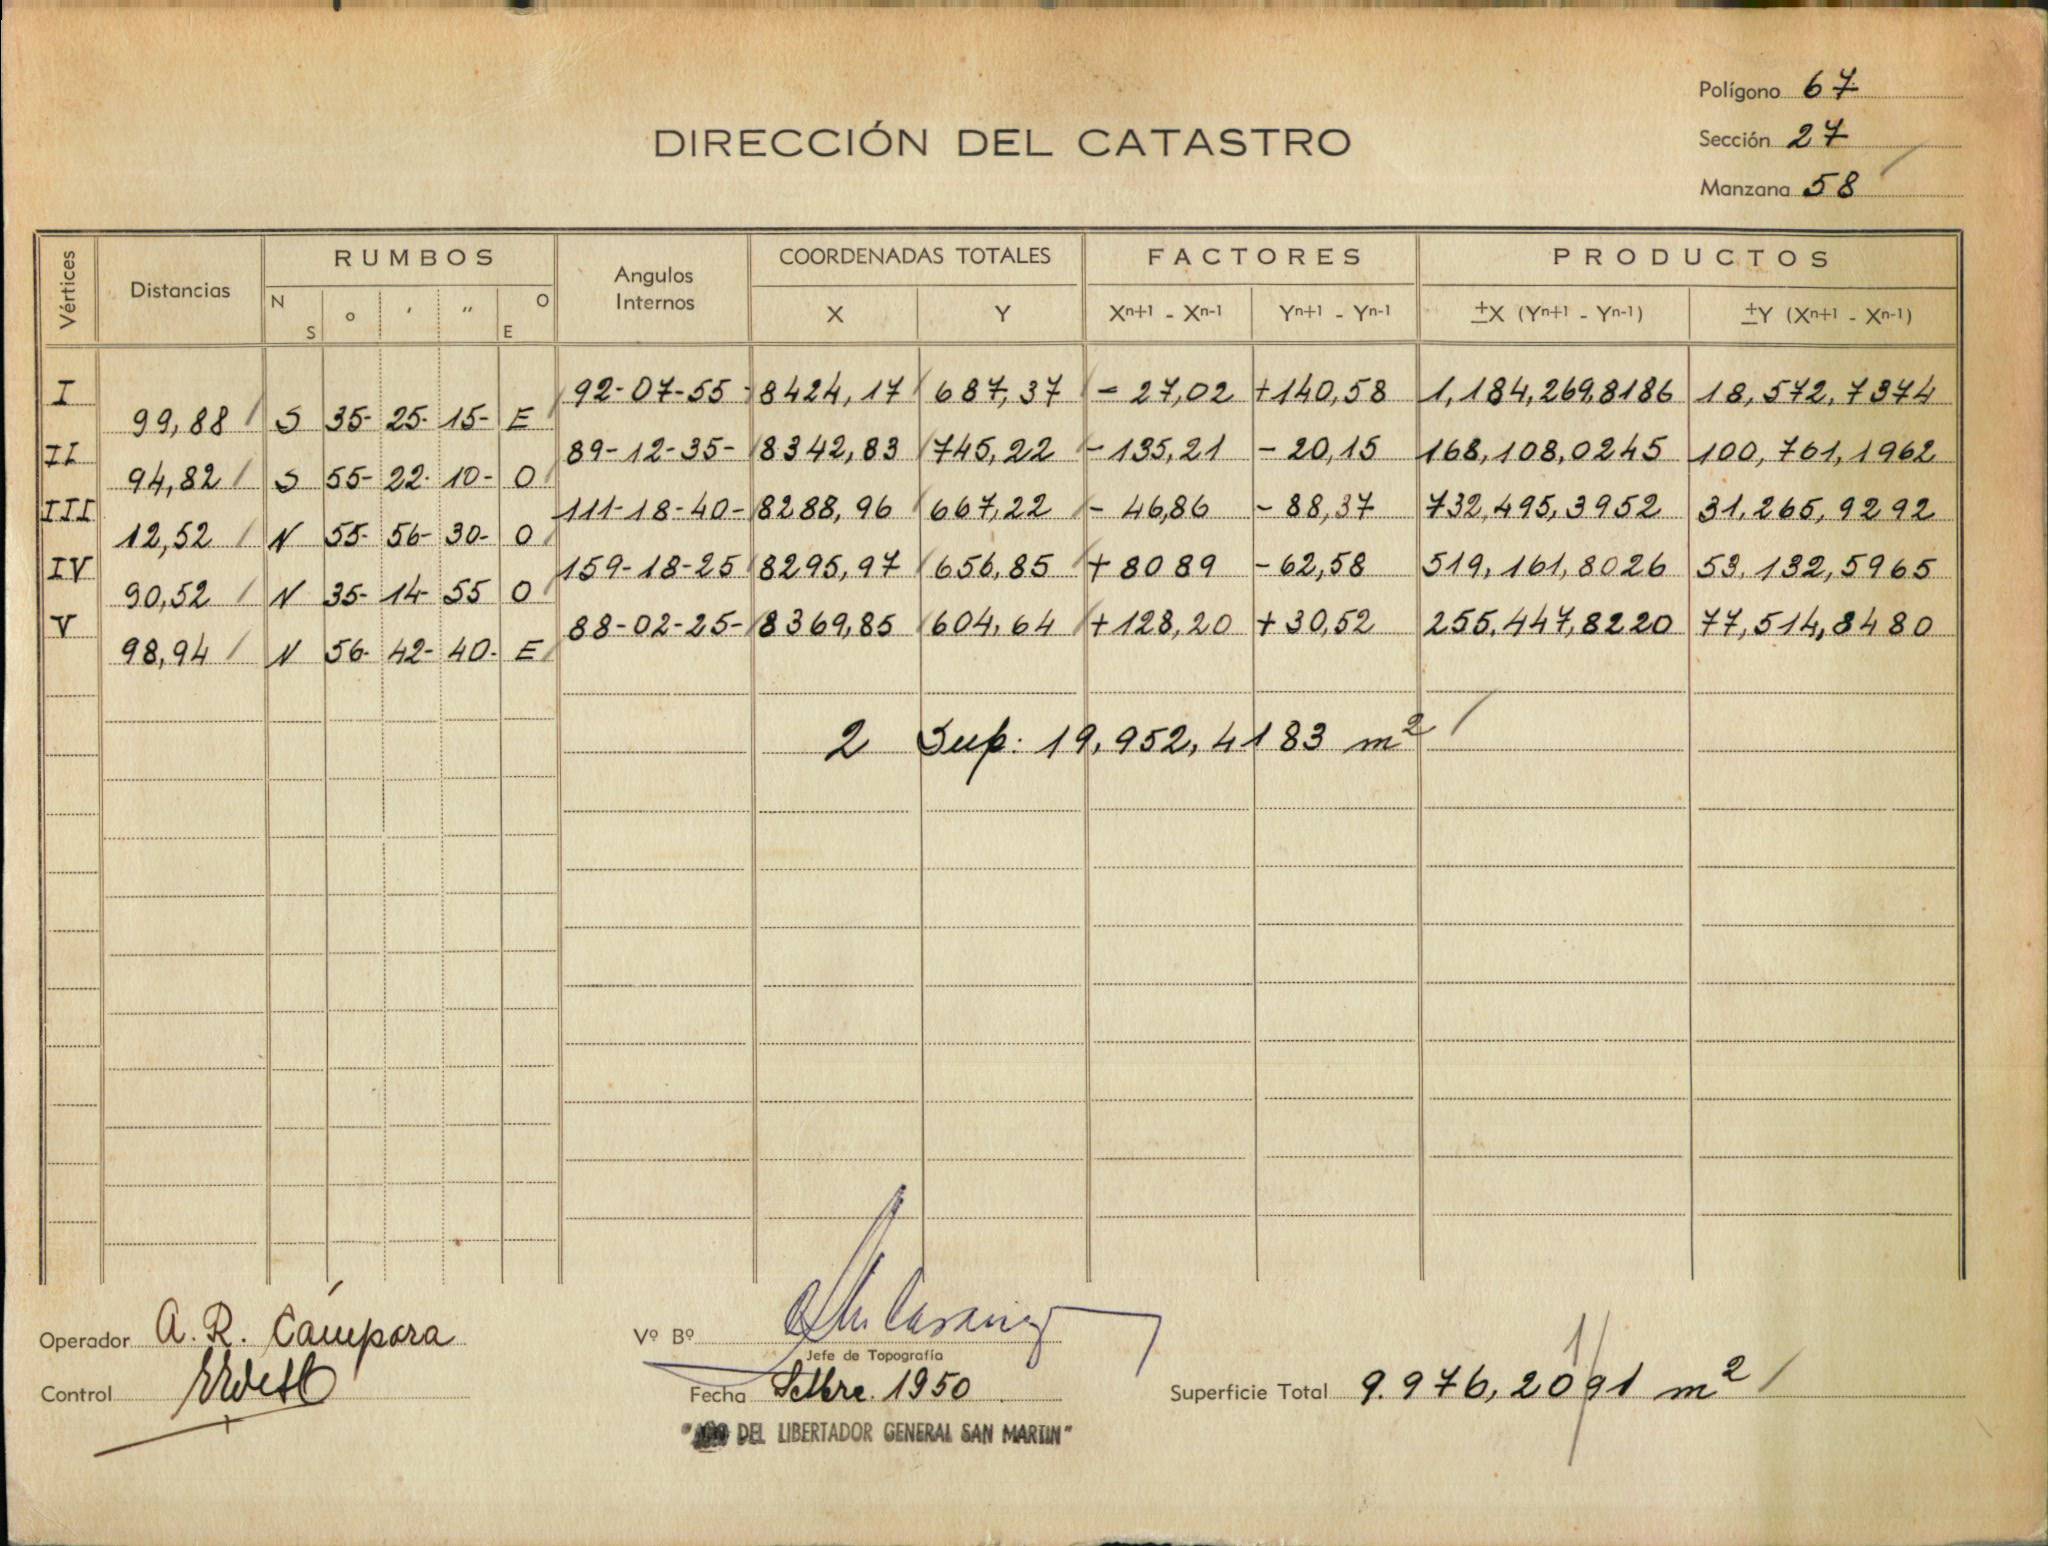 Polígono 67
DIRECCIÓN DEL CATASTRO
Sección 27
Manzana 58
Vértices
Distancias
RUMBOS
N S o ' " O E
Angulos Internos
COORDENADAS TOTALES
X Y
FACTORES
Xn+1 - Xn-1 Yn+1 - Yn-1
PRODUCTOS
±X (Yn+1 - Yn-1) ±Y (Xn+1 - Xn-1)
I 92-07-55- 8424,17 687,37 - 27,02 +140,58 1,184,269,8186 18,572,7374
99,88 S 35- 25- 15- E
II 89-12-35- 8342,83 745,22 -135,21 - 20,15 168,108,0245 100,761,1962
94,82 S 55- 22- 10- O
III 111-18-40- 8288,96 667,22 - 46,86 - 88,37 732,495,3952 31,265,9292
12,52 N 55- 56- 30- O
IV 159-18-25 8295,97 656,85 + 8089 -62,58 519,161,8026 53,132,5965
90,52 N 35- 14- 55 O
V 88-02-25- 8369,85 604,64 +128,20 +30,52 255,447,8220 77,514,8480
98,94 N 56- 42- 40- E
2 Sup. 19,952,4183 m²
Operador A. R. Cámpora
Vº Bº
Jefe de Topografía
Control
Fecha Setbre. 1950
Superficie Total 9.976,2091 m²
DEL LIBERTADOR GENERAL SAN MARTIN"